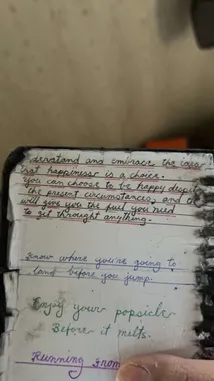 derstand and embrace the idea
that happinesse is a choice.
You can choose to be happy despite
the present circumstances, and it
will give you the fuel you need
to get throught anything.
Know where you're going to
land before you jump.
Enjoy your popsicle
Before it melts.
Running from